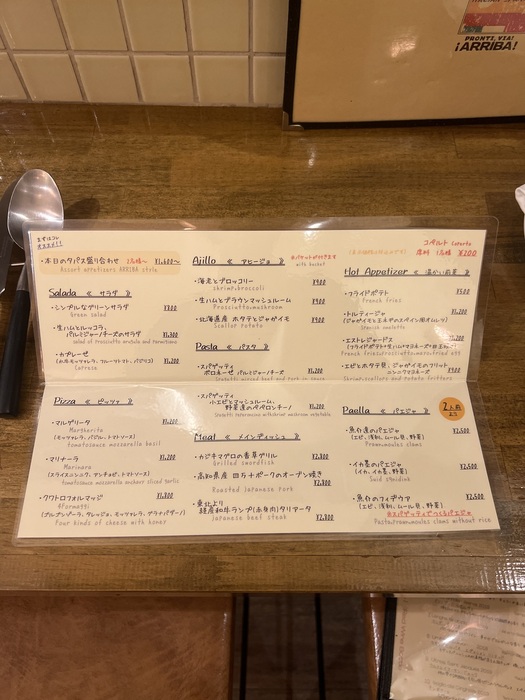 PRONTI, VIA!
¡ARRIBA!
まずはコレ
オススメ!!
・本日のタパス盛り合わせ 1名様〜 ¥1,600〜
Assort appetizers ARRIBA style
Salada 《 サラダ 》
・シンプルなグリーンサラダ ¥800
Green salad
・生ハムとルッコラ、
パルミジャーノチーズのサラダ ¥1,300
Salad of prosciutto arugula and parmigiano
・カプレーゼ ¥1,200
(水牛モッツァレラ、フルーツトマト、バジリコ)
Caprese
Ajillo 《 アヒージョ 》
※バケットが付きます
with basket
・海老とブロッコリー ¥900
shrimp.broccoli
・生ハムとブラウンマッシュルーム ¥900
Prosciutto.mushroom
・北海道産 ホタテとジャガイモ ¥900
Scallop.potato
Pasta 《 パスタ 》
・スパゲッティ
ボロネーゼ パルミジャーノチーズ ¥1,200
・スパゲッティ
小エビとマッシュルーム、
野菜達のペペロンチーノ ¥1,200
コペルト Coperto
席料 1名様 ¥200
Hot Appetizer 《 温かい前菜 》
・フライドポテト ¥500
French fries
・トルティージャ ¥1,200
(ジャガイモと玉ネギのスペイン風オムレツ)
Spanish omelette
・エストレジャードス ¥1,200
・エビとホタテ貝、ジャガイモのフリット
ニンニクマヨネーズ ¥900
Shrimp.scallops and potato fritters
Pizza 《 ピッツァ 》
・マルゲリータ ¥1,200
Margherita
(モッツァレラ、バジル、トマトソース)
tomatosauce mozzarella basil
・マリナーラ ¥1,200
Marinara
(スライスニンニク、アンチョビ、トマトソース)
tomatosauce mozzarella anchovy sliced garlic
・クワトロフォルマッジ ¥1,800
4Formatti
(ゴルゴンゾーラ、タレッジョ、モッツァレラ、グラナパダーノ)
Four kinds of cheese with honey
Meal 《 メインディッシュ 》
・カジキマグロの香草グリル ¥2,300
Grilled swordfish
・高知県産 四万十ポークのオーブン焼き ¥2,300
Roasted Japanese Pork
・東北より
経産和牛ランプ(赤身肉)タリアータ ¥2,800
Japanese beef steak
Paella 《 パエジャ 》
2人前より
・魚介達のパエジャ ¥2,500
(エビ、浅利、ムール貝、野菜)
Prawn.mussels clams
・イカ墨のパエジャ ¥2,500
(イカ、イカ墨、野菜)
Suid s9midink
・魚介のフィデウア ¥2,500
(エビ、浅利、ムール貝、野菜)
※スパゲッティでつくるパエジャ
Pasta.Prawn.mussels clams without rice